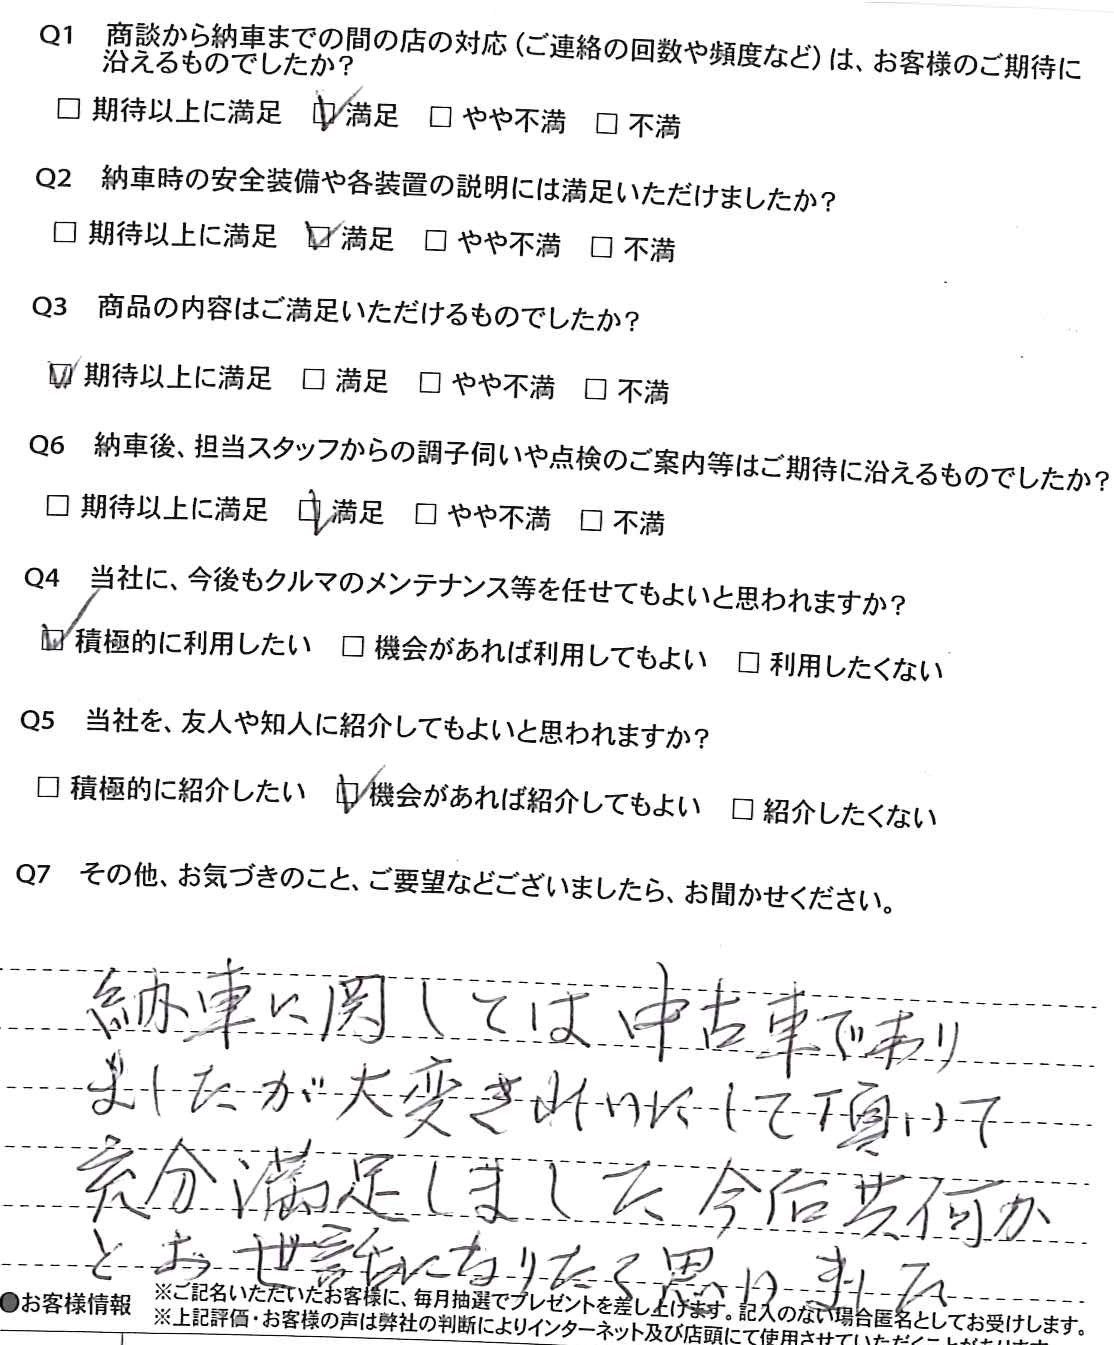 Q1 商談から納車までの間の店の対応（ご連絡の回数や頻度など）は、お客様のご期待に
沿えるものでしたか？
□ 期待以上に満足 ☑ 満足 □ やや不満 □ 不満
Q2 納車時の安全装備や各装置の説明には満足いただけましたか？
□ 期待以上に満足 ☑ 満足 □ やや不満 □ 不満
Q3 商品の内容はご満足いただけるものでしたか？
☑ 期待以上に満足 □ 満足 □ やや不満 □ 不満
Q6 納車後、担当スタッフからの調子伺いや点検のご案内等はご期待に沿えるものでしたか？
□ 期待以上に満足 ☑ 満足 □ やや不満 □ 不満
Q4 当社に、今後もクルマのメンテナンス等を任せてもよいと思われますか？
☑ 積極的に利用したい □ 機会があれば利用してもよい □ 利用したくない
Q5 当社を、友人や知人に紹介してもよいと思われますか？
□ 積極的に紹介したい ☑ 機会があれば紹介してもよい □ 紹介したくない
Q7 その他、お気づきのこと、ご要望などございましたら、お聞かせください。
納車に関しては中古車であり
ましたが大変きれいにして頂いて
充分満足しました今后共何か
とお世話になりたく思いました
●お客様情報 ※ご記名いただいたお客様に、毎月抽選でプレゼントを差し上げます。記入のない場合匿名としてお受けします。
※上記評価・お客様の声は弊社の判断によりインターネット及び店頭にて使用させていただくことがあります